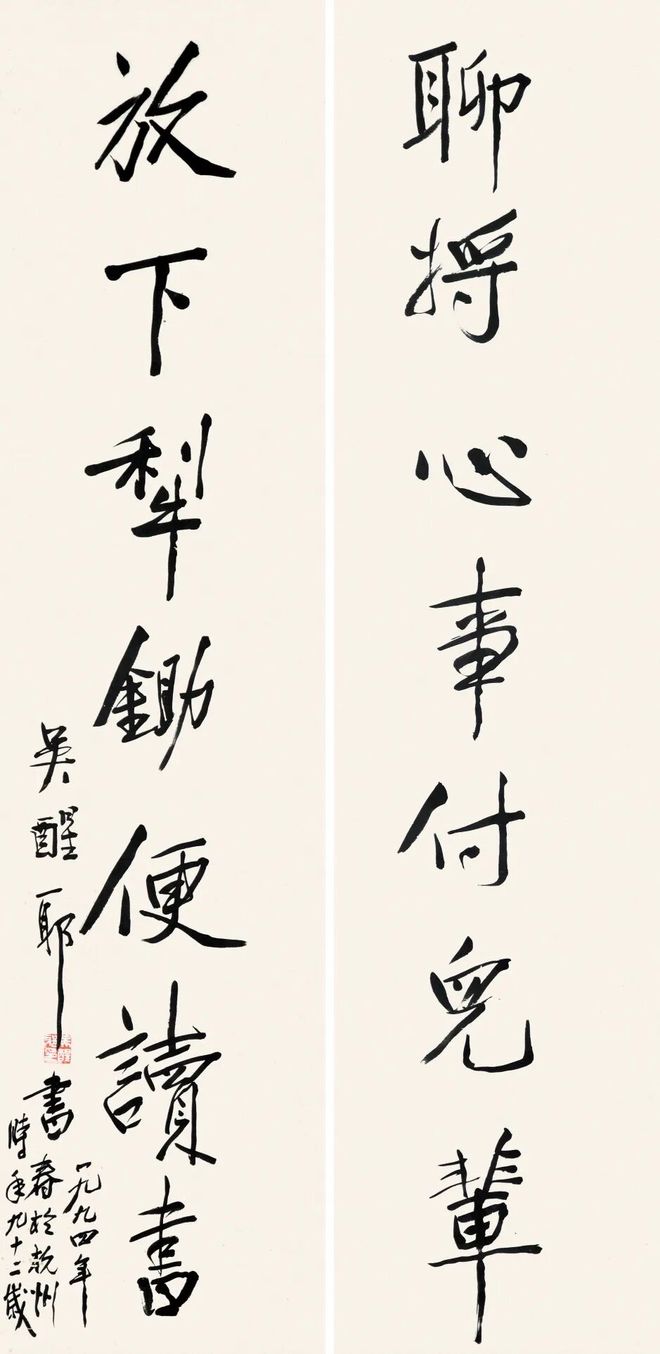 聊将心事付兒輩
放下犁鋤便讀書
一九九四年
春於杭州
吴醒耶書
時年九十二歲